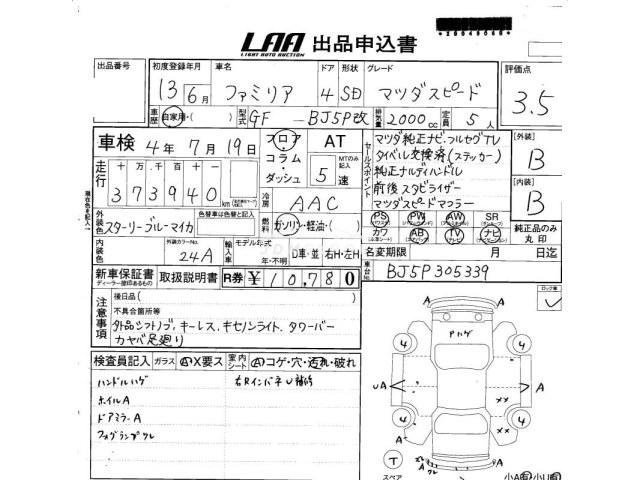 LAA 出品申込書
LIGHT AUTO AUCTION
出品番号 初度登録年月 車名 ドア 形状 グレード 評価点
13年 6月 ファミリア 4 SD マツダスピード 3.5
車歴 自家用・( ) 型式 GF - BJ5P改 排気量 2000cc 定員 5人
車検 4年 7月 19日 フロア・コラム・ダッシュ AT MTのみ記入 5速
走行 十万 万 千 百 十 一
373940 km
冷房 AAC
セールスポイント
マツダ純正ナビ・フルセグTV
タイベル交換済(ステッカー)
純正ナルディハンドル
前後スタビライザー
マツダスピードマフラー
[外装] B
[内装] B
外装色 スターリーブルーマイカ 色替車は色替と記入 燃料 ガソリン・軽油・( )
PS PW AW SR
カワ AB TV ナビ
純正品のみ丸印
内装色 外装カラーNo. 24A 輸入車 モデル年式 年・不明 D車・並 右H・左H
名変期限 月 日迄
新車保証書 取扱説明書 R券 ¥10,780
ディーラー捺印あるもの
車台No. BJ5P305339
ロック車
注意事項
後日品( )
不具合箇所等
外品シフトノブ、キーレス、キセノンライト、タワーバー
カヤバ足廻り
検査員記入 ガラス A X要ス 室内シート A コゲ・穴・汚れ・破れ
ハンドルハゲ 右RインパネU補修
ホイルA
ドアミラーA
フォグランプワレ
A A
Pハゲ
4 4
UA A A
×× ××
4 4
T
スペア
A A
小A有 小U有